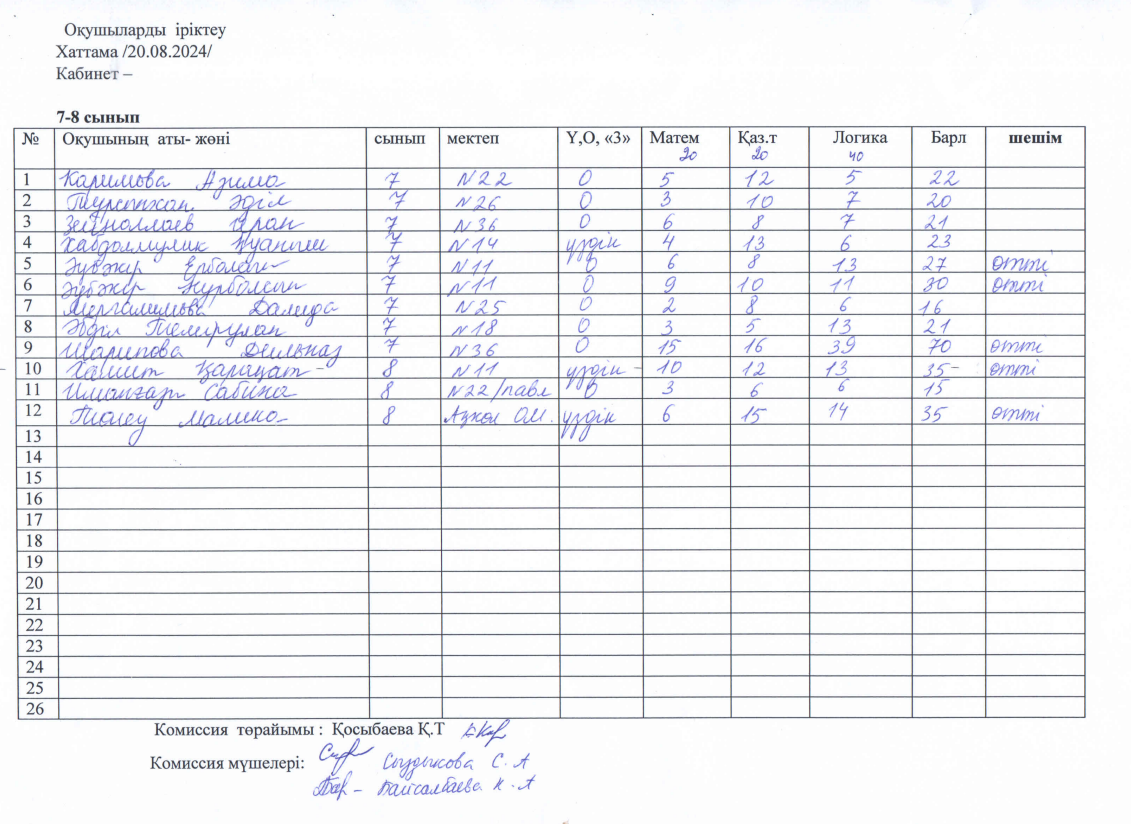 Оқушыларды іріктеу
Хаттама /20.08.2024/
Кабинет –
7-8 сынып
№ Оқушының аты- жөні сынып мектеп Ү,О, «3» Матем 20 Қаз.т 20 Логика 40 Барл шешім
1 Каримова Азима 7 №22 О 5 12 5 22
2 Әділ 7 №26 О 3 10 7 20
3 Зейноллаев 7 №36 О 6 8 7 21
4 Қуаныш 7 №14 үздік 4 13 6 23
5 Әубәкір Ерболат 7 №11 О 6 8 13 27 өтті
6 Әубәкір Нұрболат 7 №11 О 9 10 11 30 өтті
7 Мергалимова Далида 7 №25 О 2 8 6 16
8 Әбділ Темірұлан 7 №18 О 3 5 13 21
9 Шарипова Дильназ 7 №36 О 15 16 39 70 өтті
10 Қарақат – 8 №11 үздік – 10 12 13 35– өтті
11 Иманғазы Сабина 8 №22/павл О 3 6 6 15
12 Төлеу Малика 8 Ақкөл ОМ. үздік 6 15 14 35 өтті
13
14
15
16
17
18
19
20
21
22
23
24
25
26
Комиссия төрайымы : Қосыбаева Қ.Т
Комиссия мүшелері: Сыздықова С. А
Байсалбаева К. А